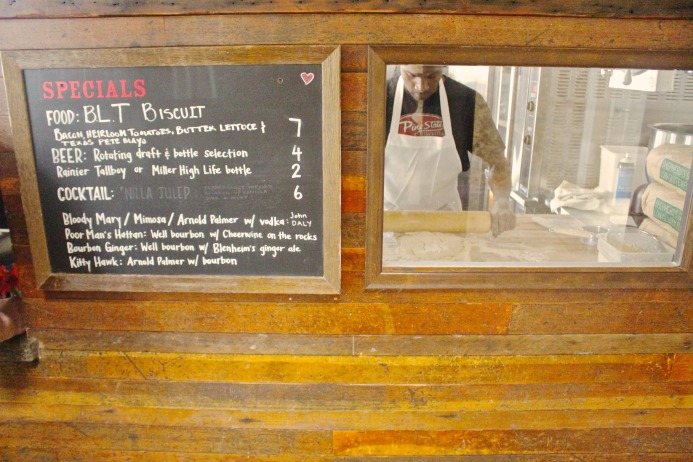 SPECIALS
FOOD: BLT BISCUIT
BACON, HEIRLOOM TOMATOES, BUTTER LETTUCE & 7
TEXAS PETE MAYO
BEER: Rotating draft & bottle selection 4
Rainier Tallboy or Miller High Life bottle 2
COCKTAIL: "NILLA JULEP 6
Bloody Mary / Mimosa / Arnold Palmer w/ vodka: John DALY
Poor Man's Heffan: Well bourbon w/ Cheerwine on the rocks
Bourbon Ginger: Well bourbon w/ Blenheim's ginger ale
Kitty Hawk: Arnold Palmer w/ bourbon
Pine State